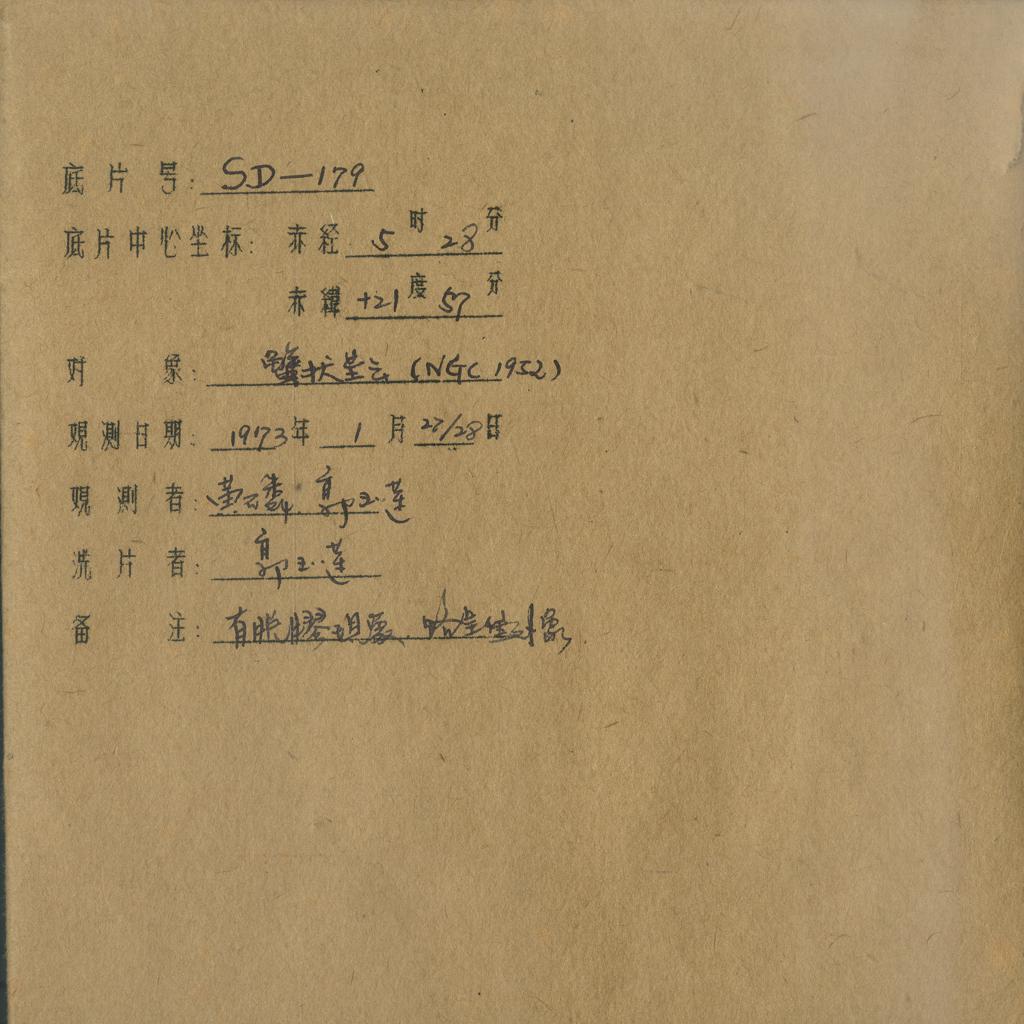 底片号: SD—179
底片中心坐标: 赤经 5时 28分
赤緯 +21度 57分
对象: 蟹状星云 (NGC 1952)
观测日期: 1973年 1月 27/28日
观測者: 黄 郭玉莲
洗片者: 郭玉莲
备注: 有脱膠现象